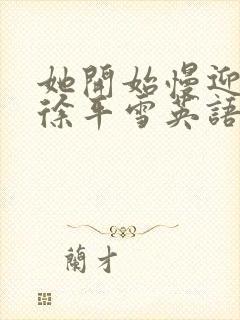 她開始慢迎
徐平雪英語
蘭才